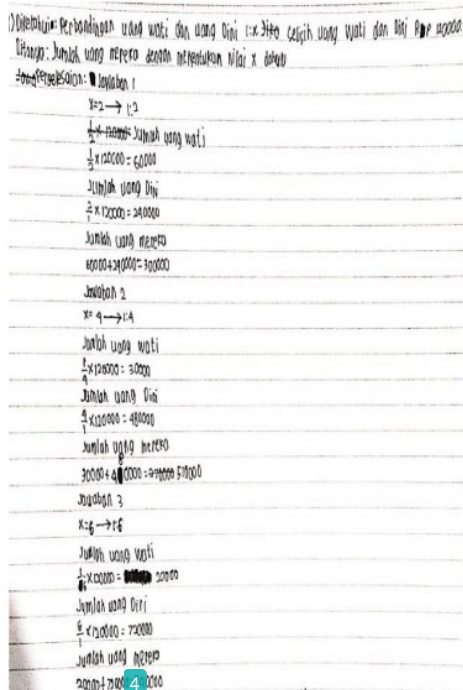 1) Diketahui: Perbandingan uang wati dan uang Dini 1:x Jika selisih uang wati dan Dini Rp 120000
Ditanya: Jumlah uang mereka dengan menentukan nilai x dahulu
Penyelesaian: Jawaban 1
x=2 → 1:2
Jumlah uang wati
1/2 x 120000 = 60000
Jumlah uang Dini
2/1 x 120000 = 240000
Jumlah uang mereka
60000+240000=300000
Jawaban 2
x= 4 → 1:4
Jumlah uang wati
1/4 x 120000 = 30000
Jumlah uang Dini
4/1 x 120000 = 480000
Jumlah uang mereka
30000+480000= 510000
Jawaban 3
x=6 → 1:6
Jumlah uang wati
x 120000 = 20000
Jumlah uang Dini
6/1 x 120000 = 720000
Jumlah uang mereka
20000+720000
4